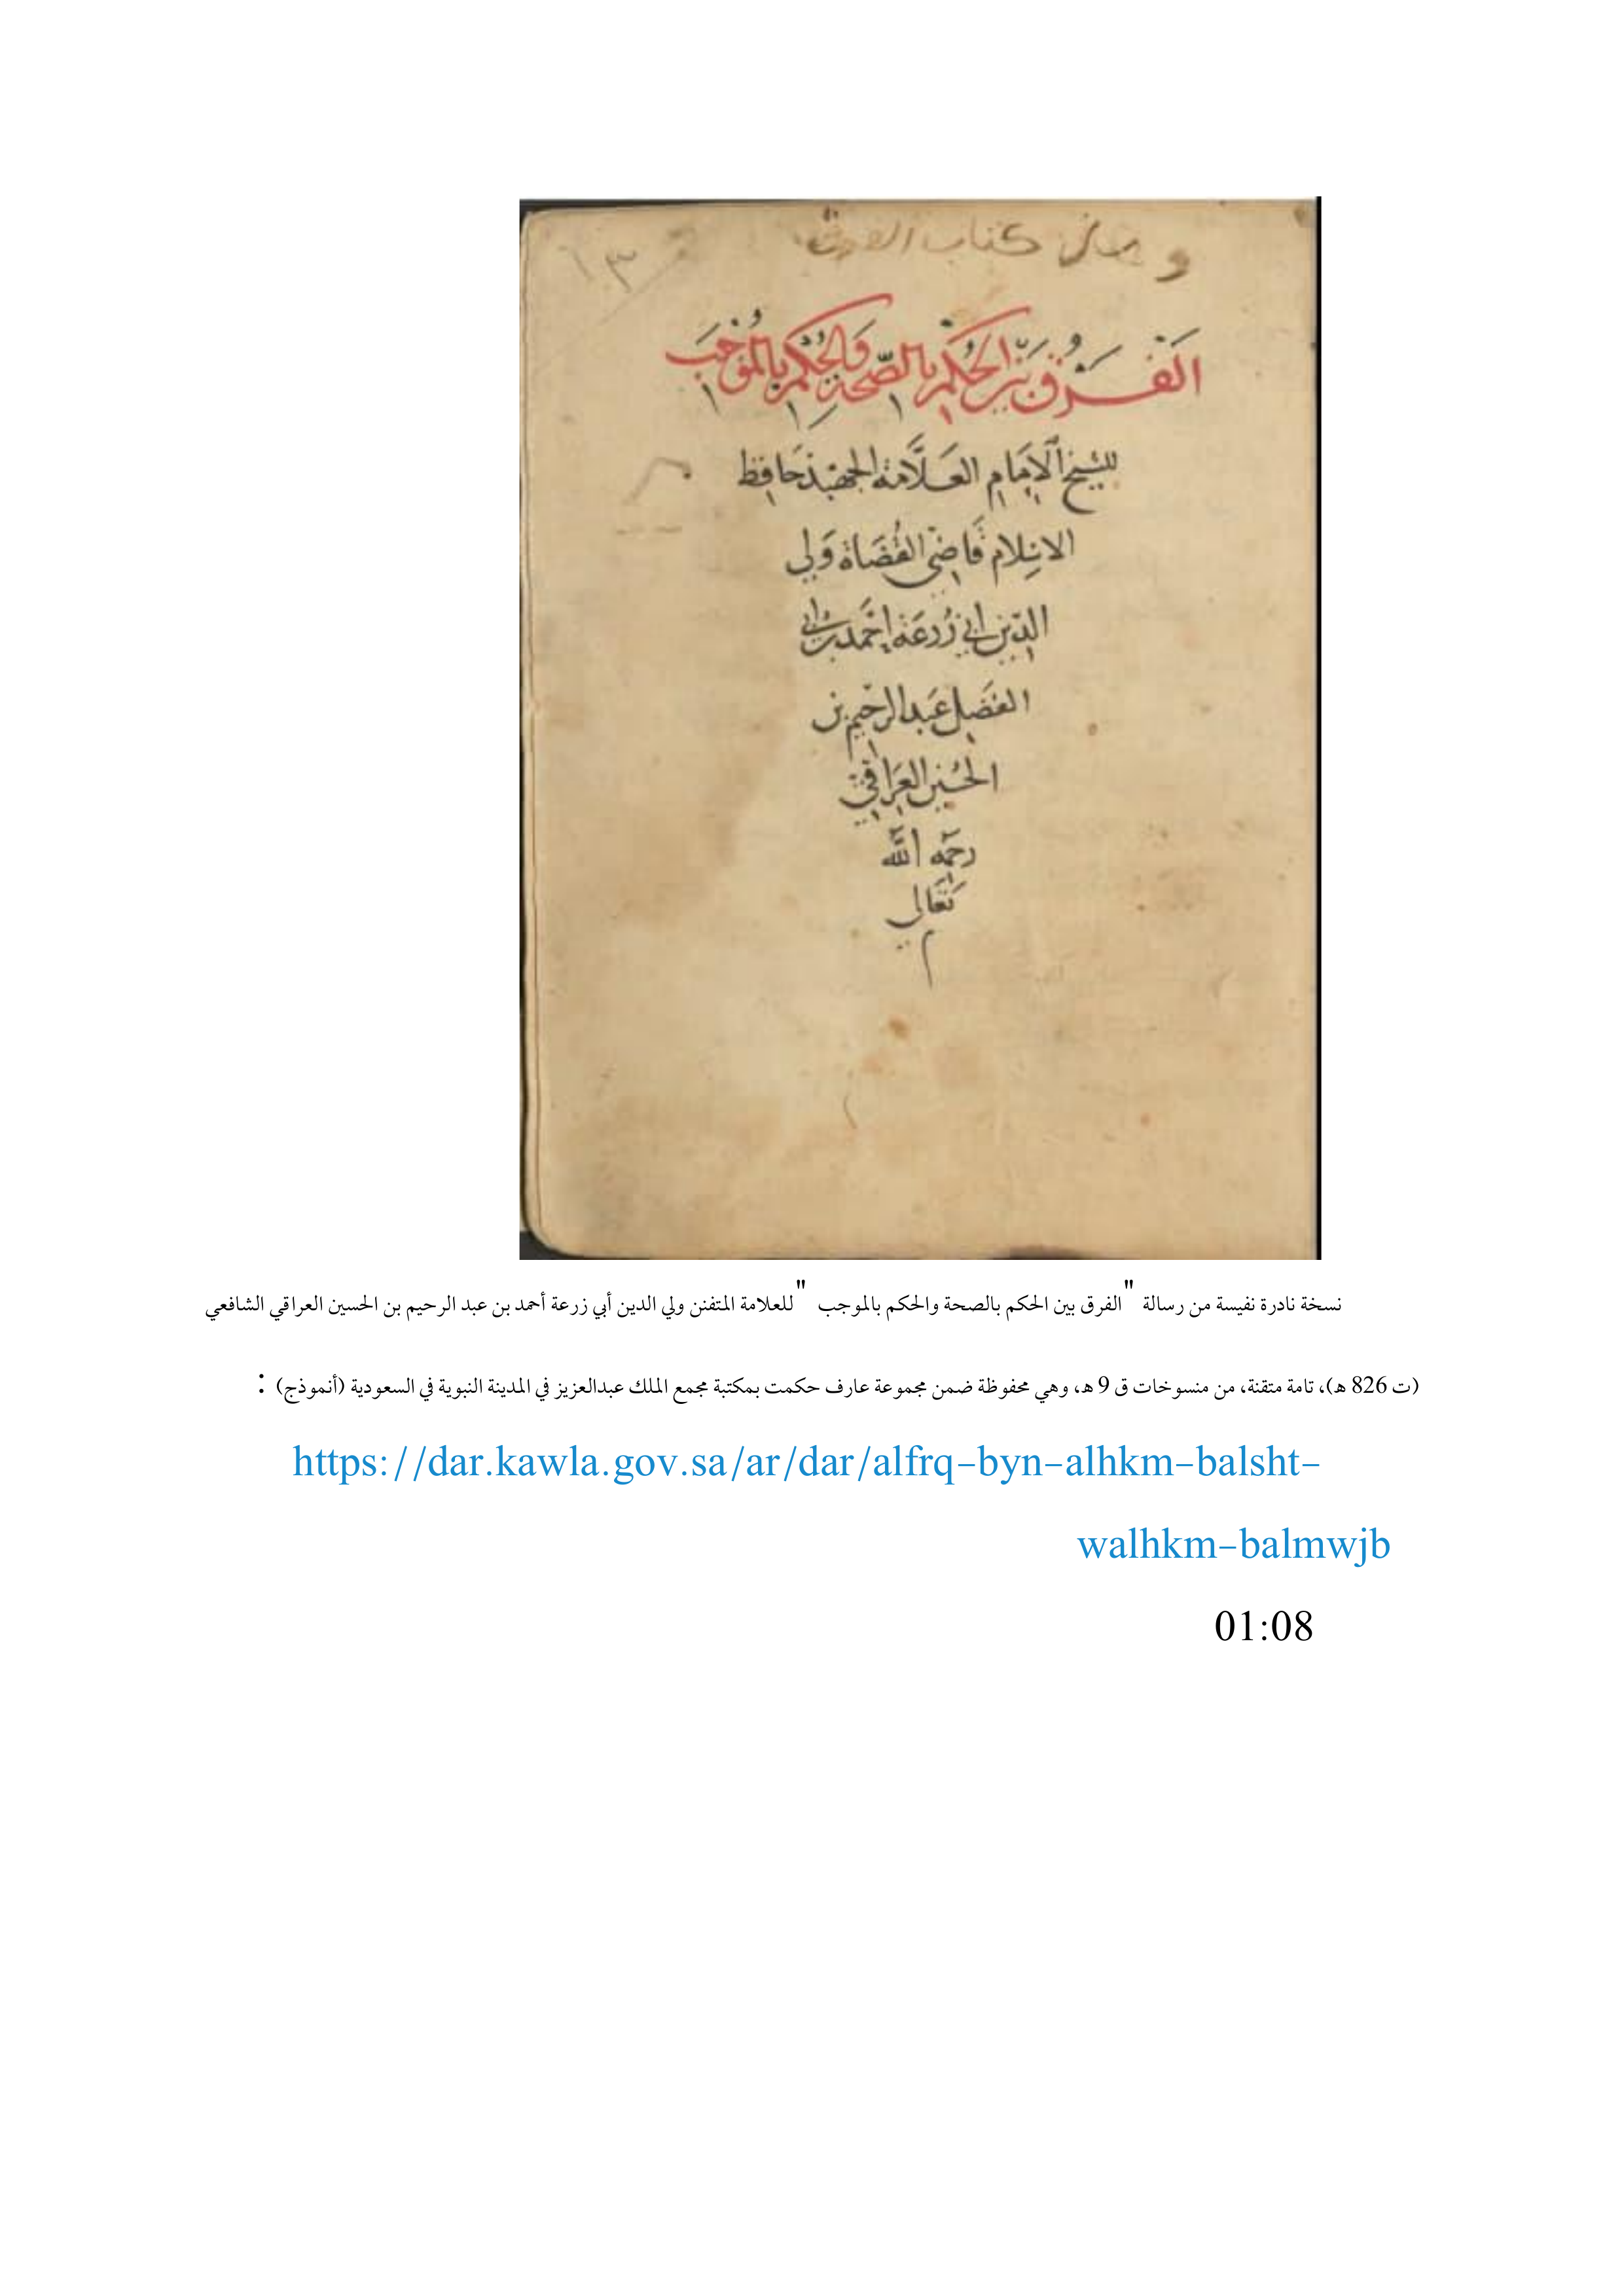 كتاب
الفَرْقُ بَيْنَ الحُكْمِ بِالصِّحَّةِ وَالحُكْمِ بِالمُوْجَبِ
للشيخ الإِمَامِ العَلَّامَة الجهبذ حَافِظ
الاسلام قَاضِي القُضَاة وَلي
الدِّين ابي زُرعَة احْمَد بن ابي
الفَضل عَبد الرحيم بن
الحسين العِرَاقي
رحمه الله
تَعَالي
نسخة نادرة نفيسة من رسالة "الفرق بين الحكم بالصحة والحكم بالموجب" للعلامة المتفنن ولي الدين أبي زرعة أحمد بن عبد الرحيم بن الحسين العراقي الشافعي
(ت 826 هـ)، تامة متقنة، من منسوخات ق 9 هـ، وهي محفوظة ضمن مجموعة عارف حكمت بمكتبة مجمع الملك عبدالعزيز في المدينة النبوية في السعودية (أنموذج) :
https://dar.kawla.gov.sa/ar/dar/alfrq-byn-alhkm-balsht-
walhkm-balmwjb
01:08